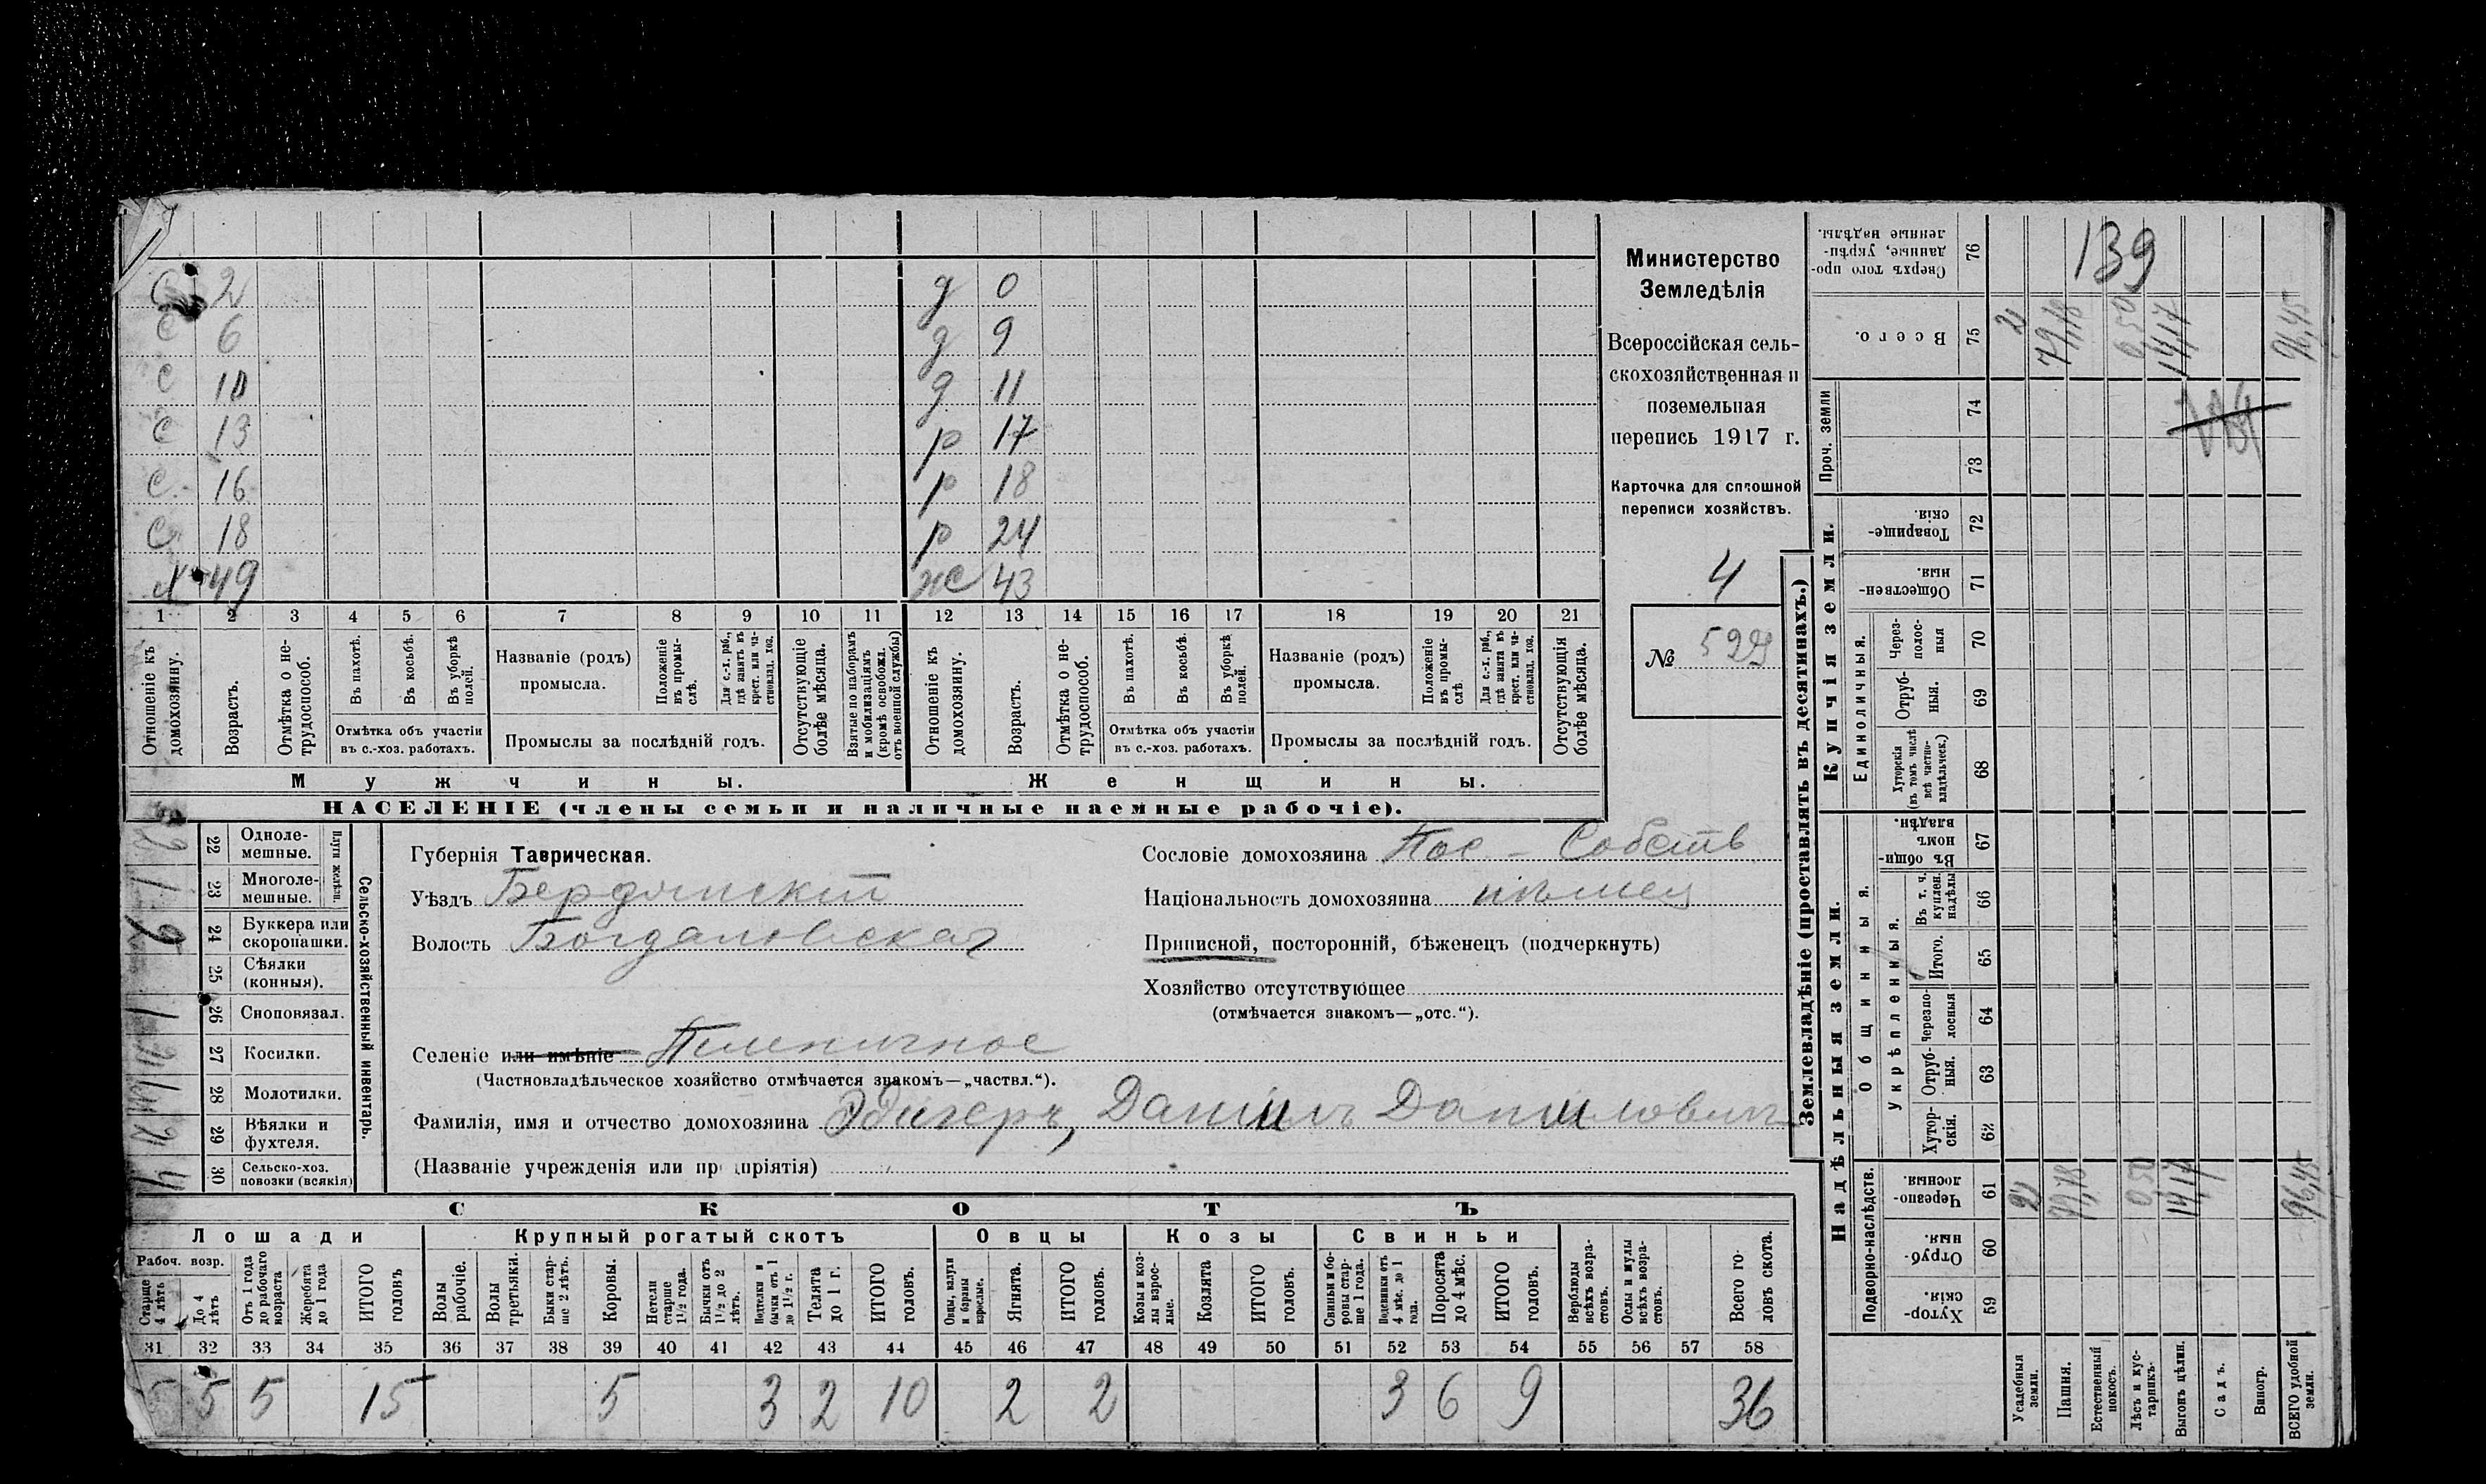 С 2 д 0
С 6 д 9
С 10 д 11
С 13 р 17
С 16 р 18
С 18 р 24
Х 49 ж 43
1 2 3 4 5 6 7 8 9 10 11 12 13 14 15 16 17 18 19 20 21
Отношеніе къ домохозяину.
Возрастъ.
Отмѣтка о не-трудоспособ.
Въ пахотѣ.
Въ косьбѣ.
Въ уборкѣ полей.
Отмѣтка объ участіи въ с.-хоз. работахъ.
Названіе (родъ) промысла.
Положеніе въ промы-слѣ.
Для с.-х. раб., гдѣ занятъ въ крест. или ча-стновлад. хоз.
Промыслы за послѣдній годъ.
Отсутствующіе болѣе мѣсяца.
Взятые по наборамъ и мобилизаціямъ (кромѣ освобожд. отъ военной службы)
Отношеніе къ домохозяину.
Возрастъ.
Отмѣтка о не-трудоспособ.
Въ пахотѣ.
Въ косьбѣ.
Въ уборкѣ полей.
Отмѣтка объ участіи въ с.-хоз. работахъ.
Названіе (родъ) промысла.
Положеніе въ промы-слѣ
Для с.-х. раб., гдѣ занята въ крест. или ча-стновлад. хоз.
Промыслы за послѣдній годъ.
Отсутствующія болѣе мѣсяца.
Мужчины.
Женщины.
НАСЕЛЕНІЕ (члены семьи и наличные наемные рабочіе).
Министерство
Земледѣлія
Всероссійская сель-
скохозяйственная и
поземельная
перепись 1917 г.
Карточка для сплошной
переписи хозяйствъ.
4
№ 529
22 Одноле-мешные.
23 Многоле-мешные.
Плуги желѣзн.
24 Буккера или скоропашки.
25 Сѣялки (конныя).
26 Сноповязал.
27 Косилки.
28 Молотилки.
29 Вѣялки и фухтеля.
30 Сельско-хоз. повозки (всякія)
Сельско-хозяйственный инвентарь.
Губернія Таврическая.
Уѣздъ Бердянскій
Волость Богдановская
Сословіе домохозяина Пос - Собств
Національность домохозяина нѣмец
Приписной, посторонній, бѣженецъ (подчеркнуть)
Хозяйство отсутствующее
(отмѣчается знакомъ—„отс.“).
Селеніе или имѣніе Пшеничное
(Частновладѣльческое хозяйство отмѣчается знакомъ—„частвл.“).
Фамилія, имя и отчество домохозяина Эдигеръ, Даніилъ Даниловичъ
(Названіе учрежденія или предпріятія)
СКОТЪ
Лошади
Крупный рогатый скотъ
Овцы
Козы
Свиньи
Рабоч. возр.
Старше 4 лѣтъ
До 4 лѣтъ
Отъ 1 года до рабочаго возраста
Жеребята до 1 года
ИТОГО головъ
Волы рабочіе.
Волы третьяки.
Быки стар-ше 2 лѣтъ.
Коровы.
Нетели старше 1½ года.
Бычки отъ 1½ до 2 лѣтъ.
Подтелки и бычки отъ 1 до 1½ г.
Телята до 1 г.
ИТОГО головъ.
Овцы, валухи и бараны взрослые.
Ягнята.
ИТОГО головъ.
Козы и коз-лы взрос-лые.
Козлята
ИТОГО головъ.
Свиньи и бо-ровы стар-ше 1 года.
Подсвинки отъ 4 мѣс. до 1 года.
Поросята до 4 мѣс.
ИТОГО головъ.
Верблюды всѣхъ возра-стовъ.
Ослы и мулы всѣхъ возра-стовъ.
Всего го-ловъ скота.
31 32 33 34 35 36 37 38 39 40 41 42 43 44 45 46 47 48 49 50 51 52 53 54 55 56 57 58
5 5 5 15 5 3 2 10 2 2 3 6 9 36
Землевладѣніе (проставлять въ десятинахъ.)
Надѣльныя земли.
Купчія земли.
Проч. земли
Подворно-наслѣдств.
Общинныя.
Укрѣпленныя.
Единоличныя.
Сверхъ того про-данные, укрѣп-ленные надѣлы. 76
139
Всего. 75
2 79,78 0,50 14,17 96,45
74
73
Товарище-скія. 72
Обществен-ныя. 71
Черезпо-лос-ныя 70
Отруб-ныя. 69
Хуторскія (въ томъ числѣ всѣ частно-владѣльческ.) 68
Въ общи-номъ владѣн. 67
Въ т. ч. куплен. надѣлы 66
Итого. 65
Черезпо-лосныя 64
Отруб-ныя. 63
Хутор-скія. 62
Черезпо-лосныя. 61
2 79,78 0,50 14,17 96,45
Отруб-ныя. 60
Хутор-скія. 59
Усадебныя земли.
Пашня.
Естественный покосъ.
Лѣсъ и кус-тарникъ.
Выгонъ цѣлин.
Садъ.
Виногр.
ВСЕГО удобной земли.